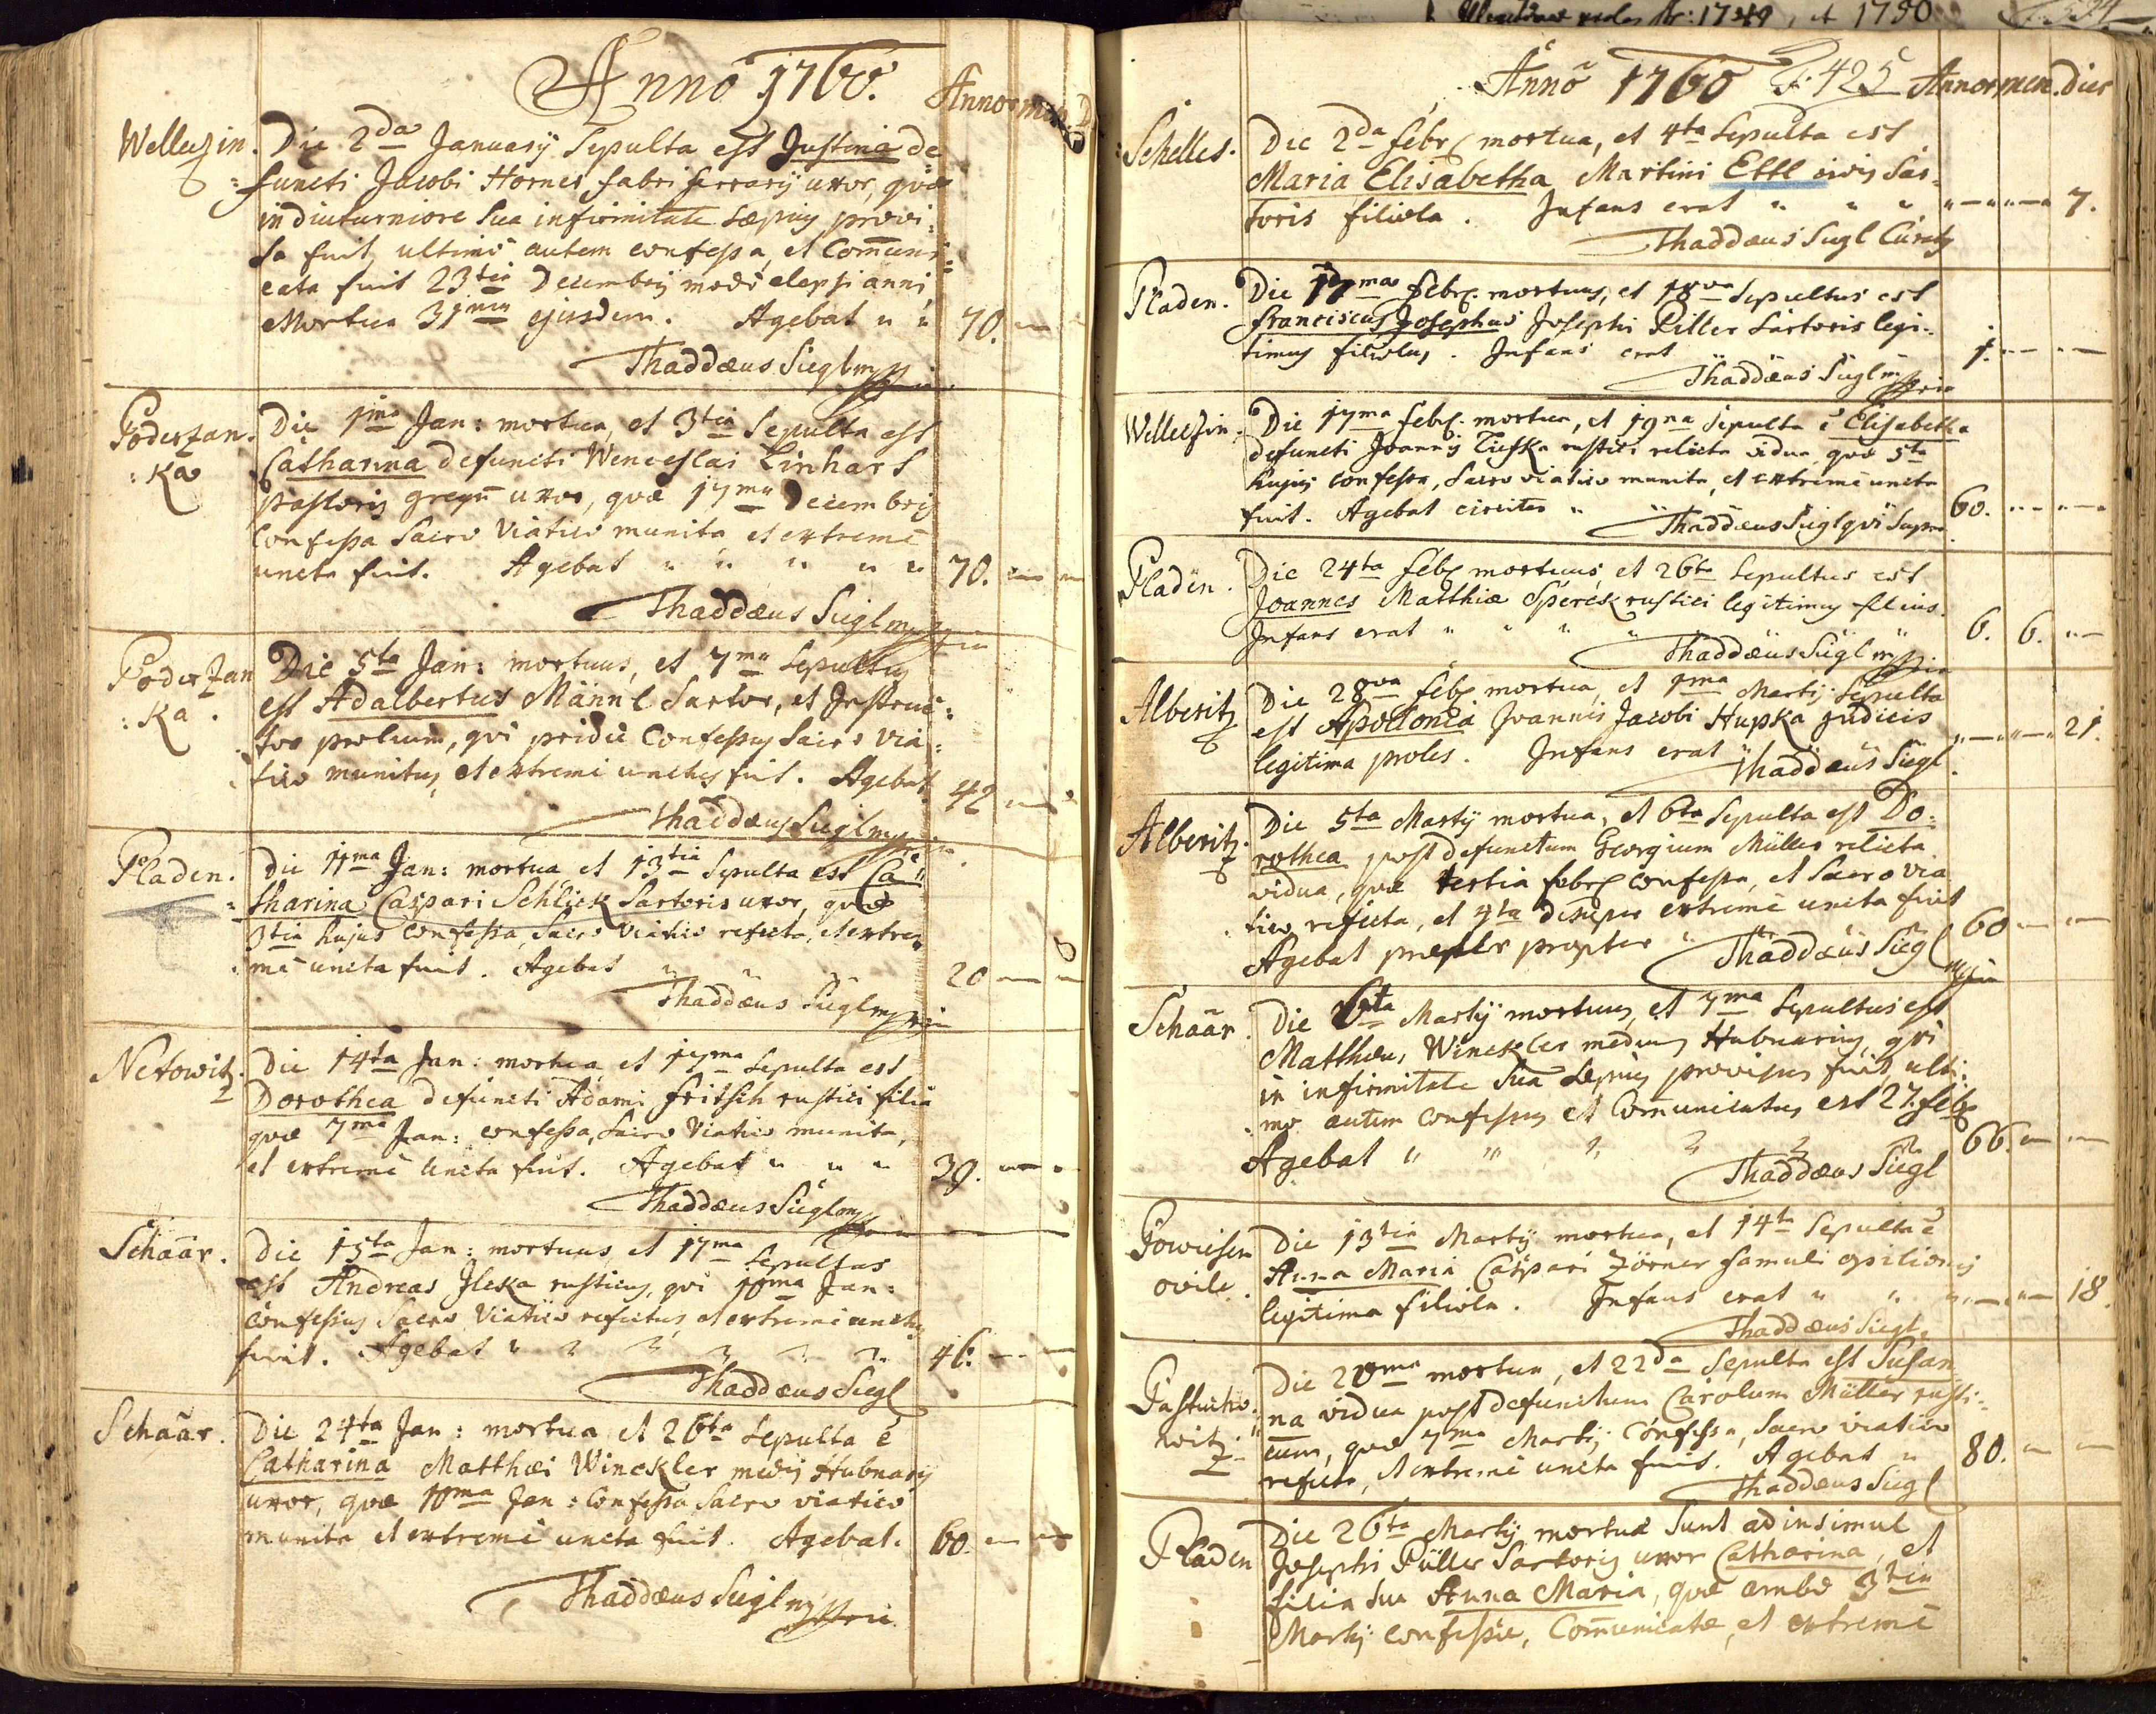 Anno 1760.
Annor. men. D
Welleczin.
Die 2da January Sepulta est Justina de
functi Jacobi Hornes fabri ferrarÿ uxor, quæ
in diuturniore Sua infirmitate sæpius provi-
sa fuit, ultimo autem confessa, et Comuni-
cata fuit 23tia Decembris modo elapsi anni,
Mortua 31ma ejusdem. Agebat " " 70.
Thaddæus Siegl mppria
Poderzan.
ka
Die 1ma Jan: mortua, et 3tia Sepulta est
Catharina defuncti Wenceslai Linhart
Pastoris gregu uxor, quæ 17ma Decembris
Confessa Sacro Viatico munita et extreme
uncta fuit. Agebat " " " " " 70.
Thaddæus Siegl mppria
Poderzan
ka.
Die 5ta Jan: mortuus, et 7ma Sepultus
est Adalbertus Männl Sartor, et Instruc-
tor prolium, qui pridie Confessus Sacro Via-
tico munitus, et extreme unctus fuit. Agebat 42
Thaddæus Siegl mppria
Pladen.
Die 11ma Jan: mortua et 13tia Sepulta est Ca-
tharina Caspari Schlick Sartoris uxor, quæ
3tia hujus Confessa, Sacro Viatico refecta, et extre-
me uncta fuit. Agebat " " " 20
Thaddæus Siegl mppria
Netowitz.
Die 14ta Jan: mortua, et 17ma Sepulta est
Dorothea defuncti Adami Fritsch rustici filia
quæ 7ma Jan: confessa, Sacro Viatico munita,
et extreme Uncta fuit. Agebat " " " 39.
Thaddæus Siegl mppria
Schaar.
Die 15ta Jan: mortuus et 17ma Sepultus
est Andreas Ileka rusticus, qui 10ma Jan:
Confessus Sacro Viatico refectus, et extreme unctus
fuit. Agebat " " " " " " 46.
Thaddæus Siegl
Schaar.
Die 24ta Jan: mortua et 26ta Sepulta e
Catharina Matthæi Winckler medÿ Hubnarÿ
uxor, quæ 10ma Jan: Confessa Sacro viatico
munita et extreme uncta fuit. Agebat. 60.
Thaddæus Siegl mppria
Anno 1760 F: 425 Annor. men. dies
Schelles.
Die 2da Febr mortua, et 4ta Sepulta est
Maria Elisabetha Martini Ettl civis Sar-
toris filiola. Infans erat " " " 7.
Thaddæus Siegl Curatus
Pladen.
Die 17ma Febr. mortuus, et 18va Sepultus est
Franciscus Josephus Josephi Piller Sartoris legi-
timus filiolus. Infans erat 1.
Thaddæus Siegl mppria
Welleczin.
Die 17ma Febr. mortua, et 19na Sepulta e Elisabetha
defuncti Joannis Tieska rustici relicta vidua, quæ 5ta
hujus confessa, Sacro viatico munita, et extreme uncta
fuit. Agebat circiter " " 60.
Thaddæus Siegl qui Supra.
Pladen.
Die 24ta Feb mortuus, et 26ta Sepultus est
Joannes Matthiæ Sperck rustici legitimus filius.
Infans erat " " " " 6. 6.
Thaddæus Siegl mppria
Alberitz
Die 28va Feb mortua, et 1ma Martÿ Sepulta
est Apollonia Joannis Jacobi Hupka Judicis
legitima proles. Infans erat " 21.
Thaddæus Siegl.
Alberitz.
Die 5ta Martÿ mortua, et 6ta Sepulta est Do-
rothea post defunctum Georgium Müller relicta
vidua, quæ tertia Febr confessa, et Sacro via
tico refecta, et 4ta desuper extreme uncta fuit
Agebat præter propter " 60
Thaddæus Siegl mppria
Schaar.
Die 6ta Martÿ mortuus, et 7ma Sepultus est
Matthæus Winckler medius Hubnarius, qui
in infirmitate Sua sæpius provisus fuit, ulti-
mo autem confessus et Comunicatus est 27. Feb
Agebat " " " " " 66.
Thaddæus Siegl
Gowiesen
ovile.
Die 13tia Martÿ mortua, et 14ta Sepulta e
Anna Maria Caspari Zörner famuli opilionis
legitima filiola. Infans erat " " " 18.
Thaddæus Siegl
Pastuho-
witz.
Die 20ma mortua, et 22da Sepulta est Susan
na vidua post defunctum Carolum Müller rusti-
cum, quæ 7ma Martÿ Confessa, Sacro viatico
refecta, et extreme uncta fuit. Agebat " 80.
Thaddæus Siegl
Pladen
Die 26ta Martÿ mortuæ Sunt ad insimul
Josephi Püller Sartoris uxor Catharina, et
filia sua Anna Maria, quæ ambo 3tia
Martÿ confessæ, Comunicatæ, et extreme